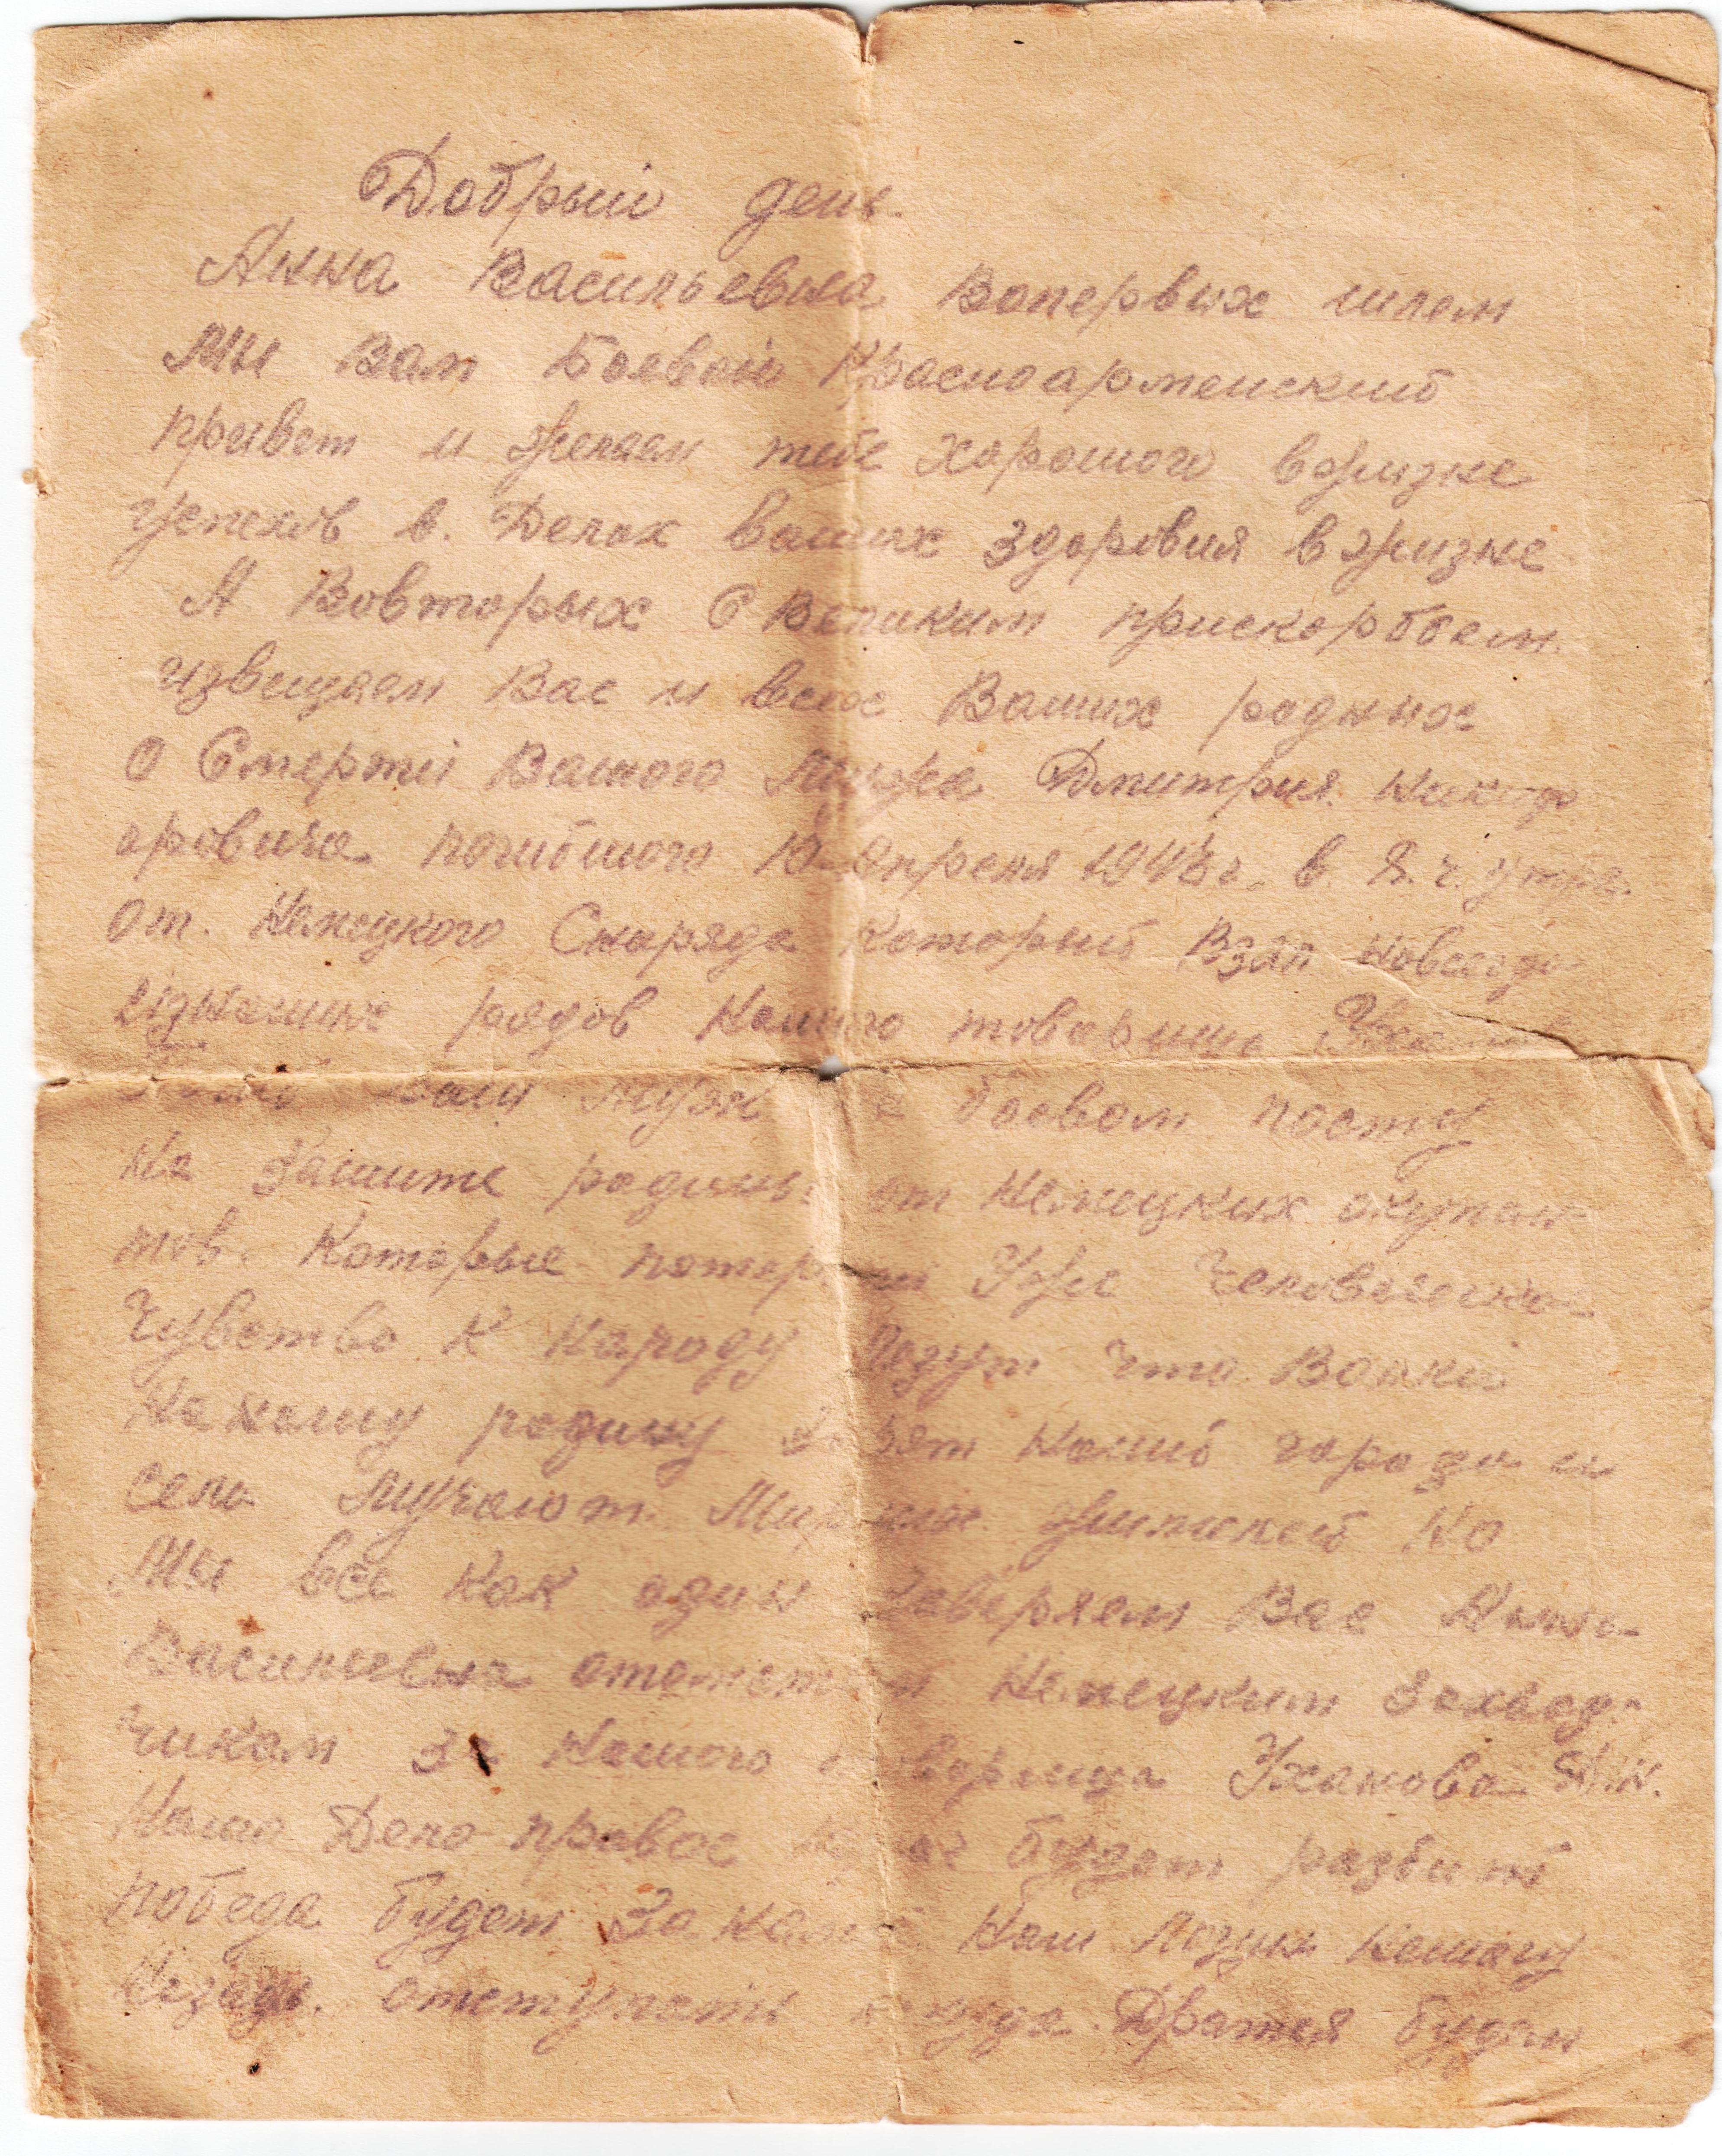 Добрый день.
Анна Васильевна Вопервых шлем
Мы Вам Боевой Красноармейский
привет и Желаем тебе хорошого вжизне
успехов в. Делах ваших здоровия вжизне
А Вовторых С Великим прискорббем.
извещаем Вас и всех Ваших родных
О Смерти Вашого Мужа Дмитрия
оровича погибшого апреля 1943 г. в. 8. ч. утра.
От. Немецкого Снаряда Который Взял Навсегда
изНаших рядов Нашого товарища
Ваш Муж боевом посту
На Защите родины от Немецких окупан
тов. Которые потеряли Уже Человеческое
Чувство К Народу Лезут Что Волки
Нанашу родину Наший города и
села Мучают. Мирных. жителей Но
Мы все Как один Заверяем Вас Анна
Васильевна отомстим Немецким Захват
чикам За Нашого товарища Ухамова
Наше Дело правое Враг будет разбитй
победа будет За нами Наш Лозунг Нашагу
Незадь. отступать некуда. Дратся будем